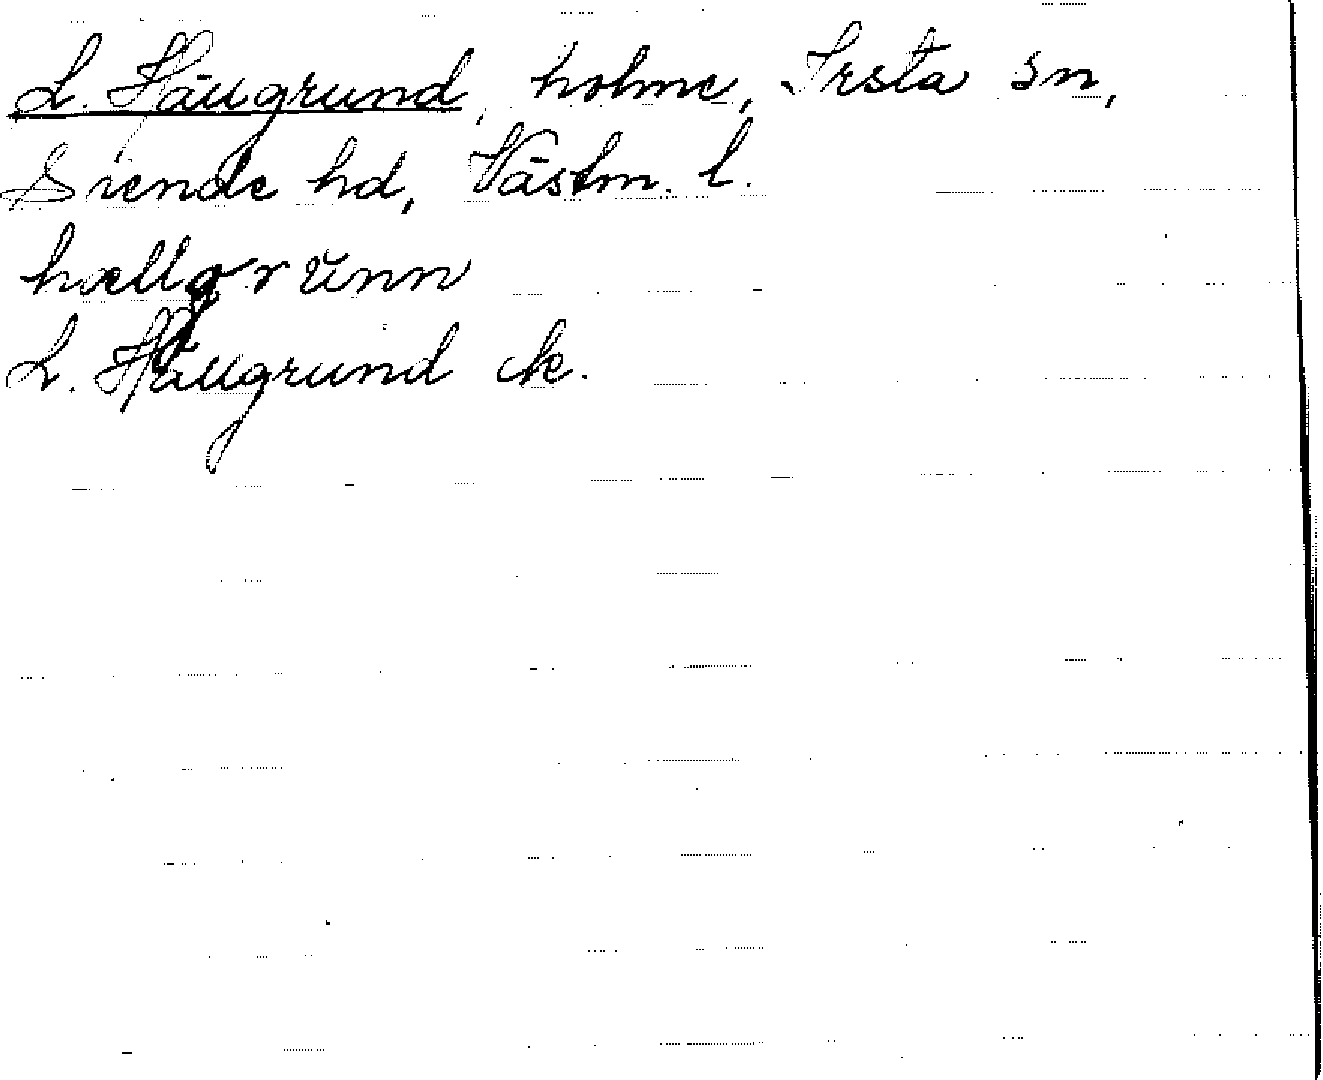 L. Hällgrund, holme, Irsta sn,
Siende hd, Västm. l.
hællgrŭnn
L. Hällgrund ek.